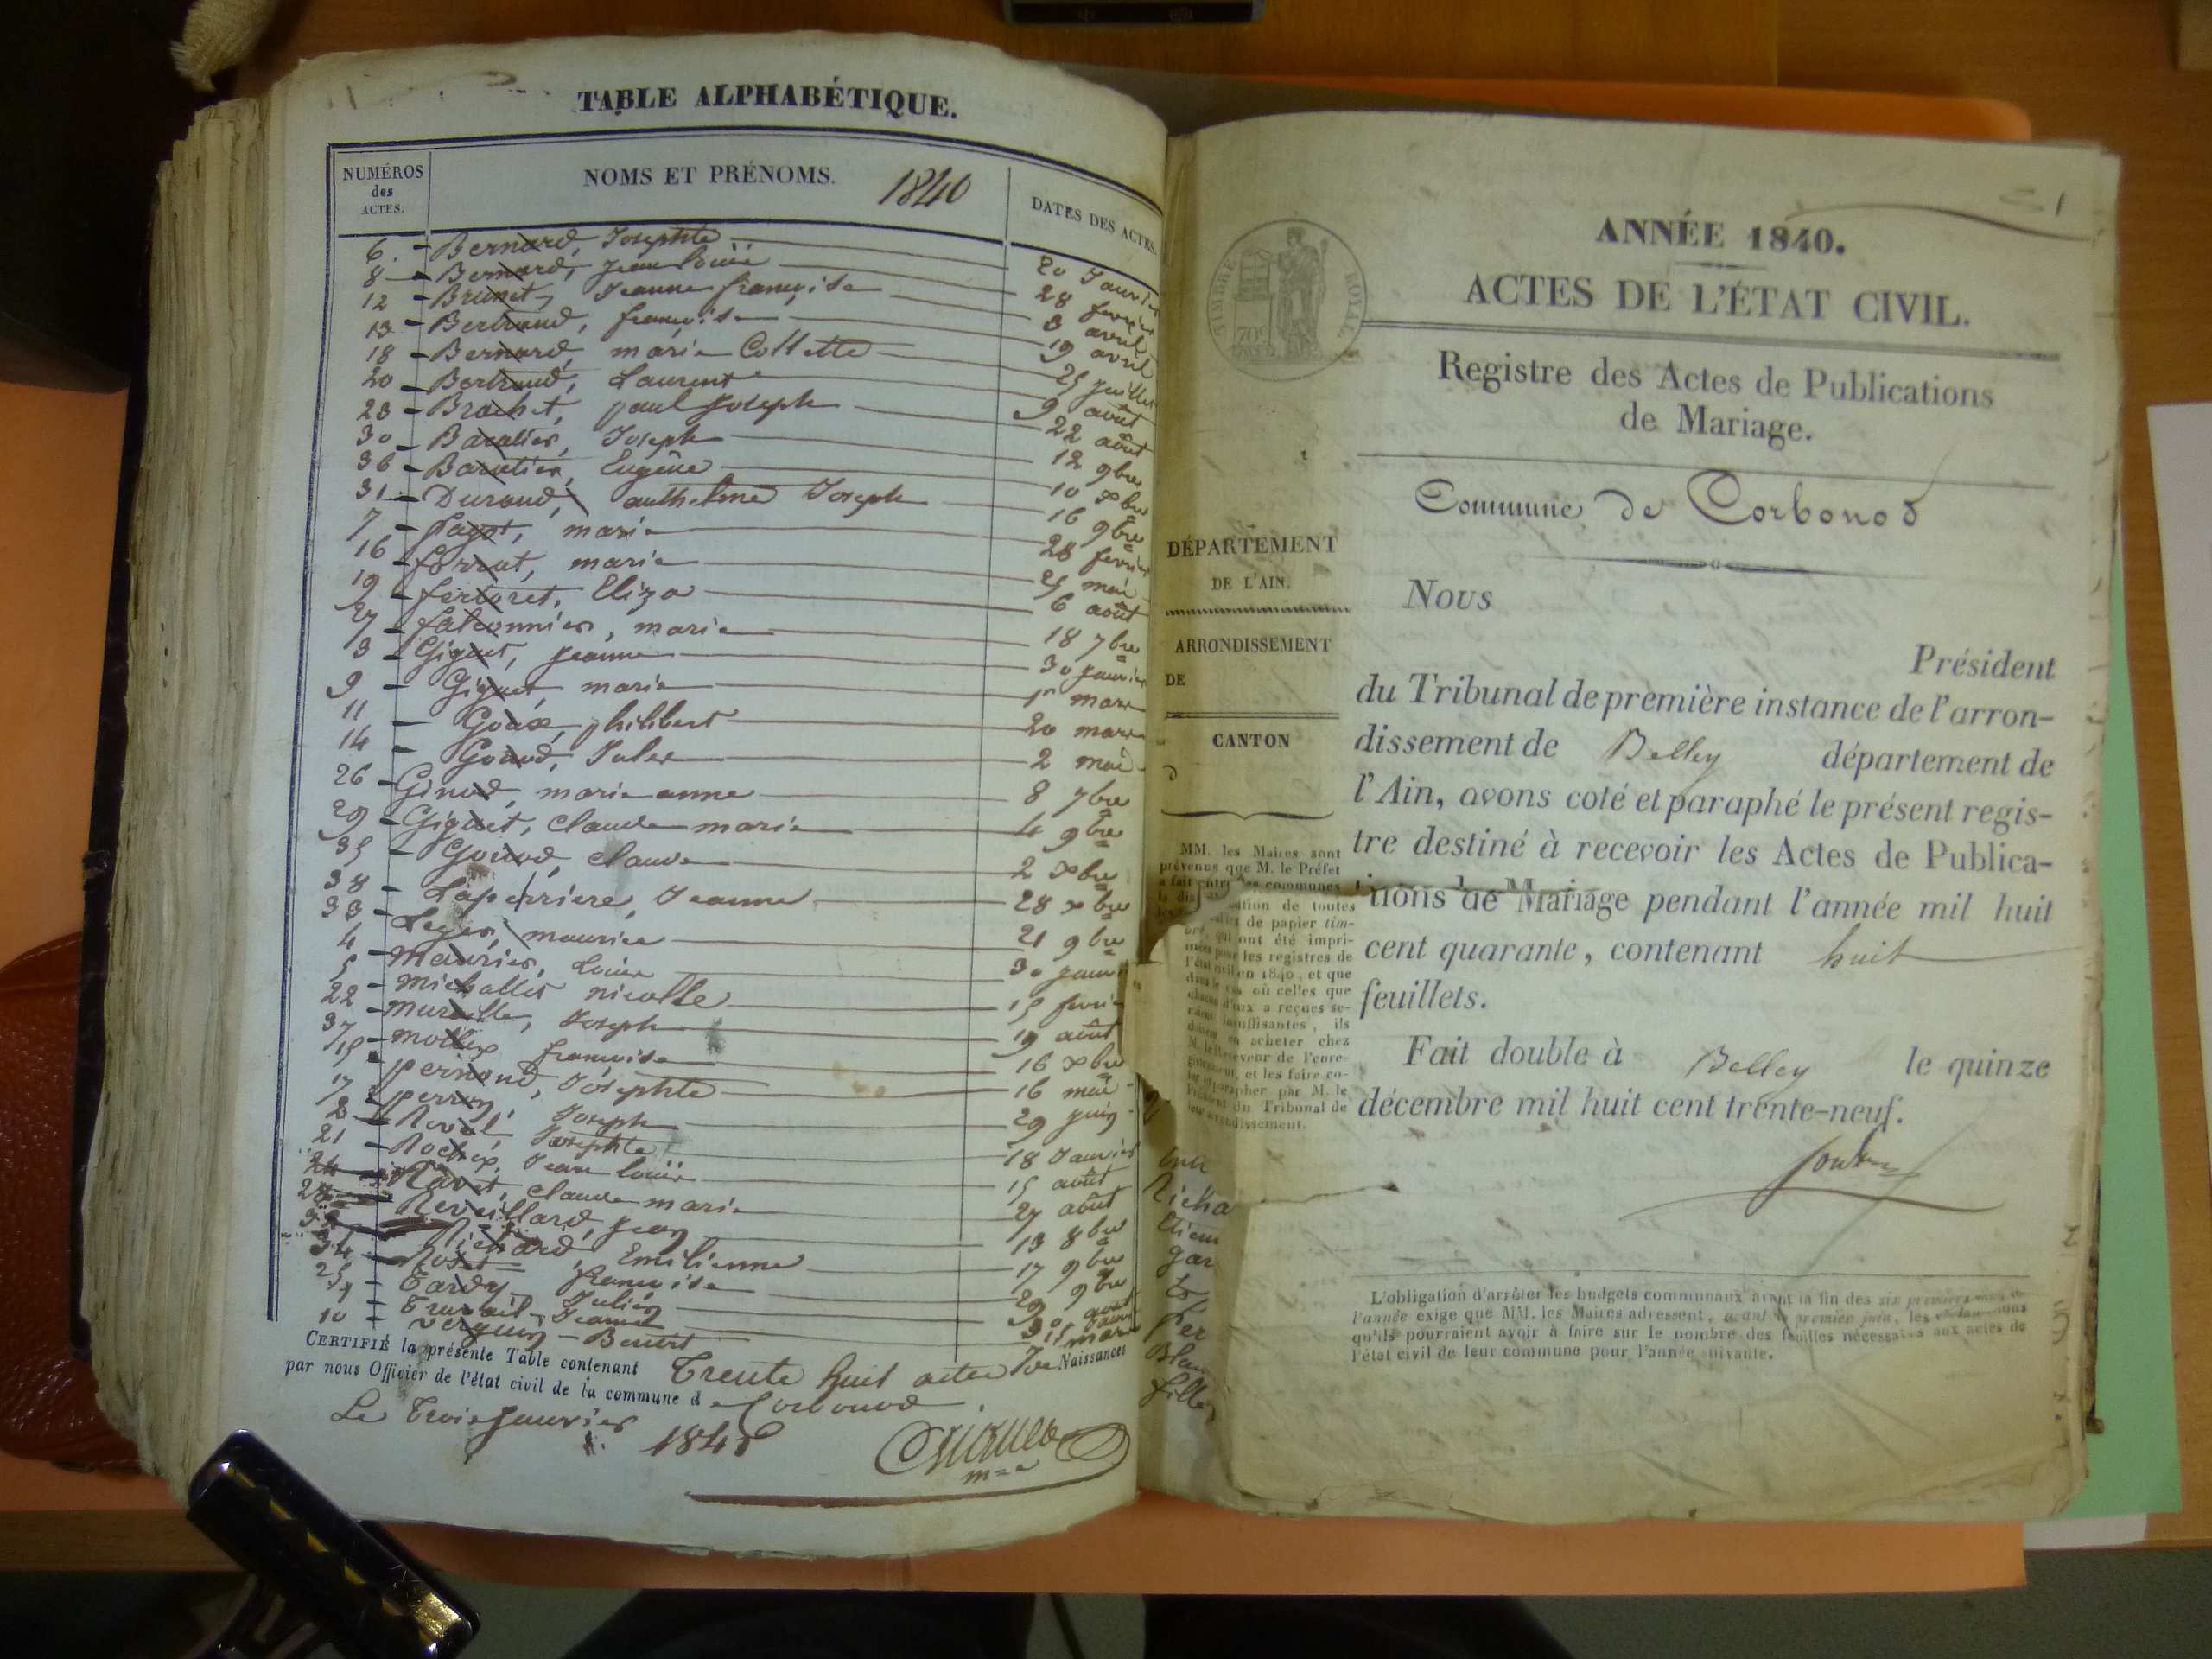 TABLE ALPHABÉTIQUE.
NUMÉROS des ACTES.
NOMS ET PRÉNOMS. 1840
DATES DES ACTES.
6. - Bernard, Josephte 20 Janvier
8 - Bernard, Jean Louis 28 fevrier
12 - Brunet, Jeanne françoise 3 avril
13 - Bertrand, françoise 19 avril
18 - Bernard, marie Collette 25 juillet
20 - Bertrand, Laurent 9 août
23 - Brachet, paul Joseph 22 août
30 - Baratier, Joseph 12 9bre
36 - Baratier, Eugène 10 xbre
31 - Durand, anthelme Joseph 16 9bre
7 - pagot, marie 28 fevrier
16 - forrat, marie 25 mai
19 - fertoret, Eliza 6 août
27 - falconnier, marie 18 7bre
3 - Giguet, jeanne 30 janvier
9 - Giguet, marie 1r mars
11 - Goux, philibert 20 mars
14 - Gonod, Jules 2 mai
26 - Ginod, marie anne 8 7bre
29 - Giguet, claude marie 4 9bre
35 - Gonod, claude 2 xbre
38 - Laperriere, Jeanne 28 xbre
33 - Leger, maurice 21 9bre
4 - maurier, Louise 30 janv
5 - michallet nicolle 15 fevrie
22 - muraille, Joseph 19 août
37 - mollex françoise 16 xbre
15 - pernoud, Josephte 16 mai
17 - perron, Joseph 29 juin
2 - Ravet, Josephte 18 Janvier
21 - Rochex, Jean Louis 15 août
24 - Ravet, claude marie 27 août
28 - Reveillard, jean 13 8bre
32 - Richard, Emilienne 17 9bre
34 - Roset françoise 29 9bre
25 - Tardy Julien 30 août
1 - Travail, Jeanne Janv
10 - verguin - Benoit 15 mars
CERTIFIÉ la présente Table contenant Trente huit actes de Naissances
par nous Officier de l'état civil de la commune d e Corbonod
Le Trois janvier 1841
Giguet
mre
ANNÉE 1840.
ACTES DE L'ÉTAT CIVIL.
TIMBRE ROYAL
70c
Registre des Actes de Publications
de Mariage.
Commune de Corbonod
DÉPARTEMENT
DE L'AIN.
ARRONDISSEMENT
DE
CANTON
d
MM. les Maires sont
prévenus que M. le Préfet
a fait entre les communes
la distribution de toutes
de papier tim-
bré, qui ont été impri-
mées pour les registres de
l'état civil en 1840, et que
dans le cas où celles que
chacun d'eux a reçues se-
raient insuffisantes, ils
doivent en acheter chez
M. le Receveur de l'enre-
gistrement, et les faire co-
ter et parapher par M. le
Président du Tribunal de
leur arrondissement.
Nous
Président
du Tribunal de première instance de l'arron-
dissement de Belley département de
l'Ain, avons coté et paraphé le présent regis-
tre destiné à recevoir les Actes de Publica-
tions de Mariage pendant l'année mil huit
cent quarante, contenant huit
feuillets.
Fait double à Belley le quinze
décembre mil huit cent trente-neuf.
L'obligation d'arrêter les budgets communaux avant la fin des six premiers mois de
l'année exige que MM. les Maires adressent, avant le premier juin, les déclarations
qu'ils pourraient avoir à faire sur le nombre des feuilles nécessaires aux actes de
l'état civil de leur commune pour l'année suivante.